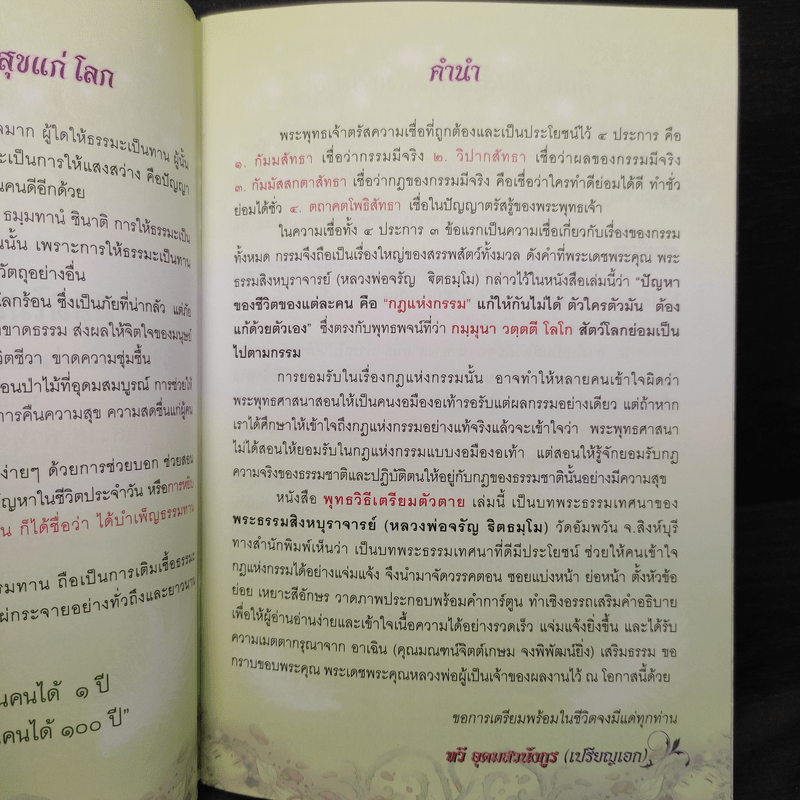 สุขแก่ โลก
มาก ผู้ใดให้ธรรมะเป็นทาน ผู้นั้น
ะเป็นการให้แสงสว่าง คือปัญญา
นคนดีอีกด้วย
ธมฺมทานํ ชินาติ การให้ธรรมะเป็น
นนั้น เพราะการให้ธรรมะเป็นทาน
วัตถุอย่างอื่น
โลกร้อน ซึ่งเป็นภัยที่น่ากลัว แต่ภัย
าขาดธรรม ส่งผลให้จิตใจของมนุษย์
วิตชีวา ขาดความชุ่มชื้น
อนป่าไม้ที่อุดมสมบูรณ์ การช่วยให้
การคืนความสุข ความสดชื่นแก่ผู้คน
ง่ายๆ ด้วยการช่วยบอก ช่วยสอน
ปัญหาในชีวิตประจำวัน หรือการหยิบ
น ก็ได้ชื่อว่า ได้บำเพ็ญธรรมทาน
รมทาน ถือเป็นการเติมเชื้อธรรมะ
ผ่กระจายอย่างทั่วถึงและยาวนาน
นคนได้ ๑ ปี
นคนได้ ๑๐๐ ปี"
คำนำ
พระพุทธเจ้าตรัสความเชื่อที่ถูกต้องและเป็นประโยชน์ไว้ ๔ ประการ คือ
๑. กัมมสัทธา เชื่อว่ากรรมมีจริง ๒. วิปากสัทธา เชื่อว่าผลของกรรมมีจริง
๓. กัมมัสสกตาสัทธา เชื่อว่ากฎของกรรมมีจริง คือเชื่อว่าใครทำดีย่อมได้ดี ทำชั่ว
ย่อมได้ชั่ว ๔. ตถาคตโพธิสัทธา เชื่อในปัญญาตรัสรู้ของพระพุทธเจ้า
ในความเชื่อทั้ง ๔ ประการ ๓ ข้อแรกเป็นความเชื่อเกี่ยวกับเรื่องของกรรม
ทั้งหมด กรรมจึงถือเป็นเรื่องใหญ่ของสรรพสัตว์ทั้งมวล ดังคำที่พระเดชพระคุณ พระ
ธรรมสิงหบุราจารย์ (หลวงพ่อจรัญ ฐิตธมฺโม) กล่าวไว้ในหนังสือเล่มนี้ว่า "ปัญหา
ของชีวิตของแต่ละคน คือ "กฎแห่งกรรม" แก้ให้กันไม่ได้ ตัวใครตัวมัน ต้อง
แก้ด้วยตัวเอง" ซึ่งตรงกับพุทธพจน์ที่ว่า กมฺมุนา วตฺตตี โลโก สัตว์โลกย่อมเป็น
ไปตามกรรม
การยอมรับในเรื่องกฎแห่งกรรมนั้น อาจทำให้หลายคนเข้าใจผิดว่า
พระพุทธศาสนาสอนให้เป็นคนงอมืองอเท้ารอรับแต่ผลกรรมอย่างเดียว แต่ถ้าหาก
เราได้ศึกษาให้เข้าใจถึงกฎแห่งกรรมอย่างแท้จริงแล้วจะเข้าใจว่า พระพุทธศาสนา
ไม่ได้สอนให้ยอมรับในกฎแห่งกรรมแบบงอมืองอเท้า แต่สอนให้รู้จักยอมรับกฎ
ความจริงของธรรมชาติและปฏิบัติตนให้อยู่กับกฎของธรรมชาตินั้นอย่างมีความสุข
หนังสือ พุทธวิธีเตรียมตัวตาย เล่มนี้ เป็นบทพระธรรมเทศนาของ
พระธรรมสิงหบุราจารย์ (หลวงพ่อจรัญ ฐิตธมฺโม) วัดอัมพวัน จ.สิงห์บุรี
ทางสำนักพิมพ์เห็นว่า เป็นบทพระธรรมเทศนาที่ดีมีประโยชน์ ช่วยให้คนเข้าใจ
กฎแห่งกรรมได้อย่างแจ่มแจ้ง จึงนำมาจัดวรรคตอน ซอยแบ่งหน้า ย่อหน้า ตั้งหัวข้อ
ย่อย เหยาะสีอักษร วาดภาพประกอบพร้อมคำการ์ตูน ทำเชิงอรรถเสริมคำอธิบาย
เพื่อให้ผู้อ่านอ่านง่ายและเข้าใจเนื้อความได้อย่างรวดเร็ว แจ่มแจ้งยิ่งขึ้น และได้รับ
ความเมตตากรุณาจาก อาเฉิน (คุณมณฑน์จิตต์เกษม จงพิพัฒน์ยิ่ง) เสริมธรรม ขอ
กราบขอบพระคุณ พระเดชพระคุณหลวงพ่อผู้เป็นเจ้าของผลงานไว้ ณ โอกาสนี้ด้วย
ขอการเตรียมพร้อมในชีวิตจงมีแด่ทุกท่าน
ทวี อุดมสวนังกูร (เปรียญเอก)